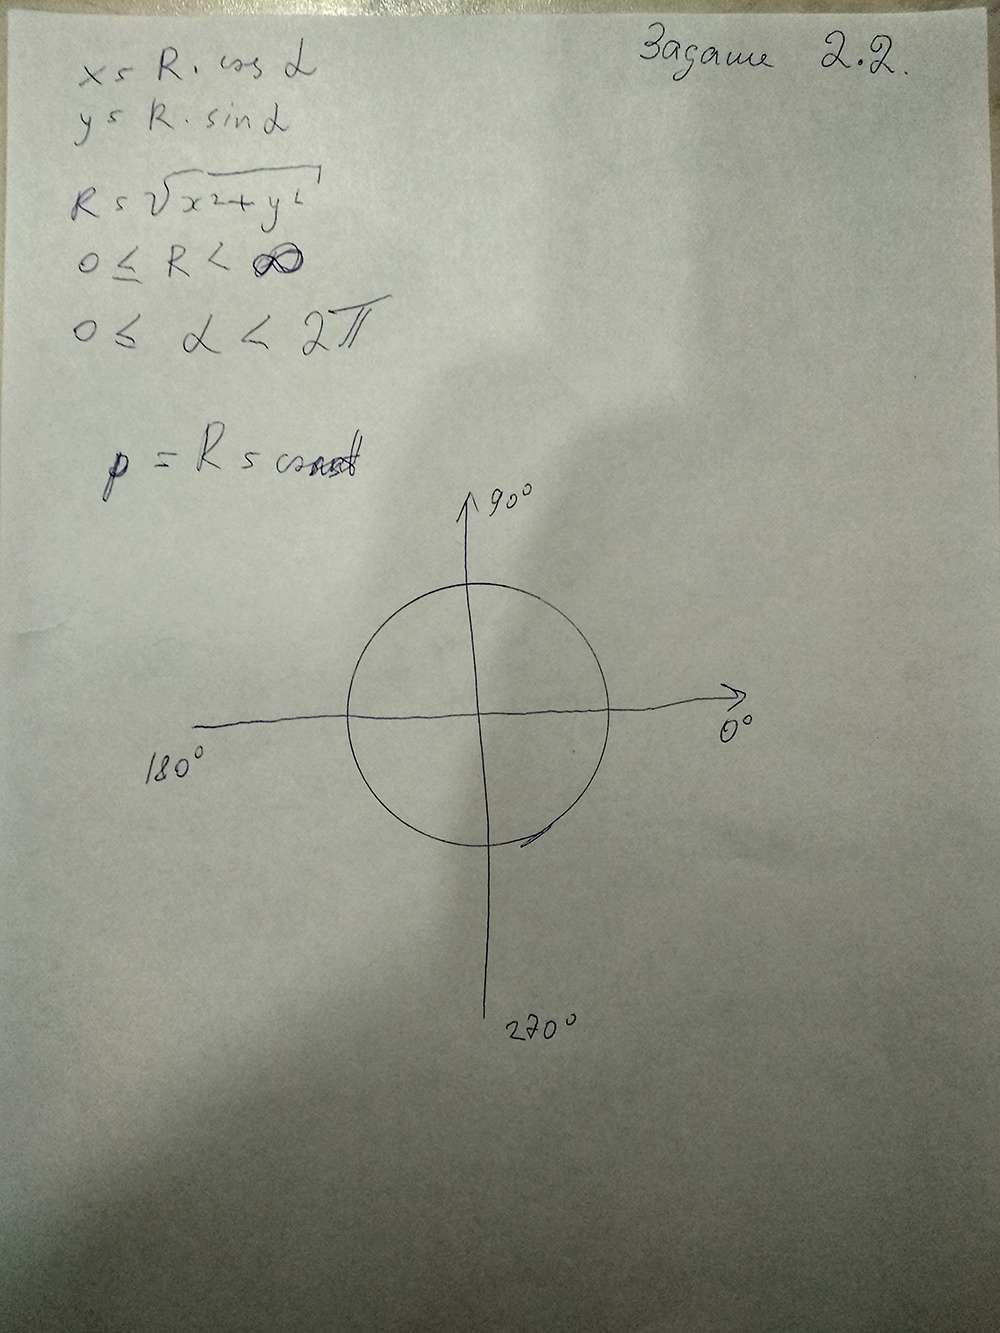 Задание 2.2.
x = R · cos α
y = R · sin α
R = √x²+y²
0 ≤ R < ∞
0 ≤ α < 2π
p = R = const
90°
0°
180°
270°